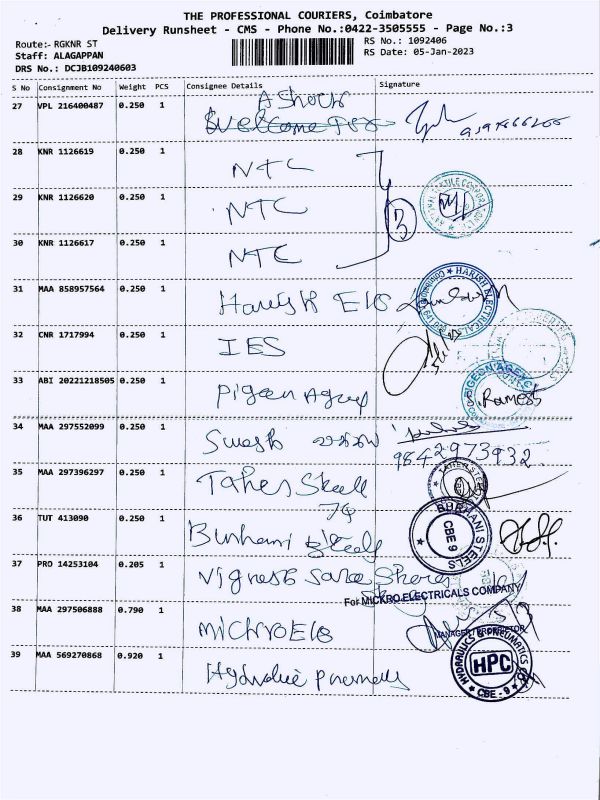 THE PROFESSIONAL COURIERS, Coimbatore
Delivery Runsheet - CMS - Phone No.:0422-3505555 - Page No.:3
Route:- RGKNR ST
RS No.: 1092406
Staff: ALAGAPPAN
RS Date: 05-Jan-2023
DRS No.: DCJB109240603
S No Consignment No Weight PCS Consignee Details Signature
27 VPL 216400487 0.250 1 AShock
28 KNR 1126619 0.250 1 NTC
29 KNR 1126620 0.250 1 NTC 3
30 KNR 1126617 0.250 1 NTC
31 MAA 858957564 0.250 1 Harish Els HARISH ELECTRICALS
32 CNR 1717994 0.250 1 IES
33 ABI 20221218505 0.250 1 Pigeon Agency PIGEON AGENCY S.Ramesh
34 MAA 297552099 0.250 1 Suresh 9842973932
35 MAA 297396297 0.250 1 Taher Steel
36 TUT 413090 0.250 1 Burhani Steels BURHANI STEELS CBE 9
37 PRO 14253104 0.205 1 Vignesh
For MICKRO ELECTRICALS COMPANY
38 MAA 297506888 0.790 1 Mickro Els
39 MAA 569270868 0.920 1 HYDRAULICS & PNEUMATICS HPC CBE - 9